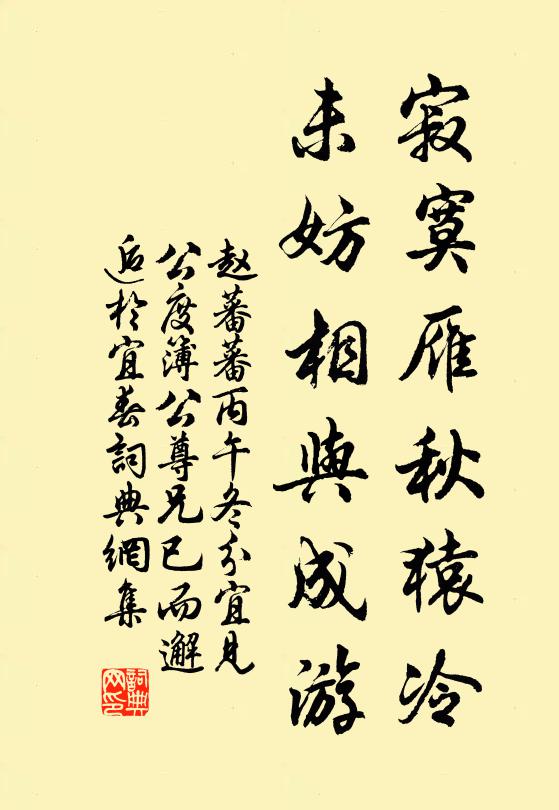 寂寞雁秋猿冷
未妨相與成游
赵蕃蕃丙午冬分宜見
公度簿公尊兄已而邂
逅於宜春詞典網集
詞典
网印